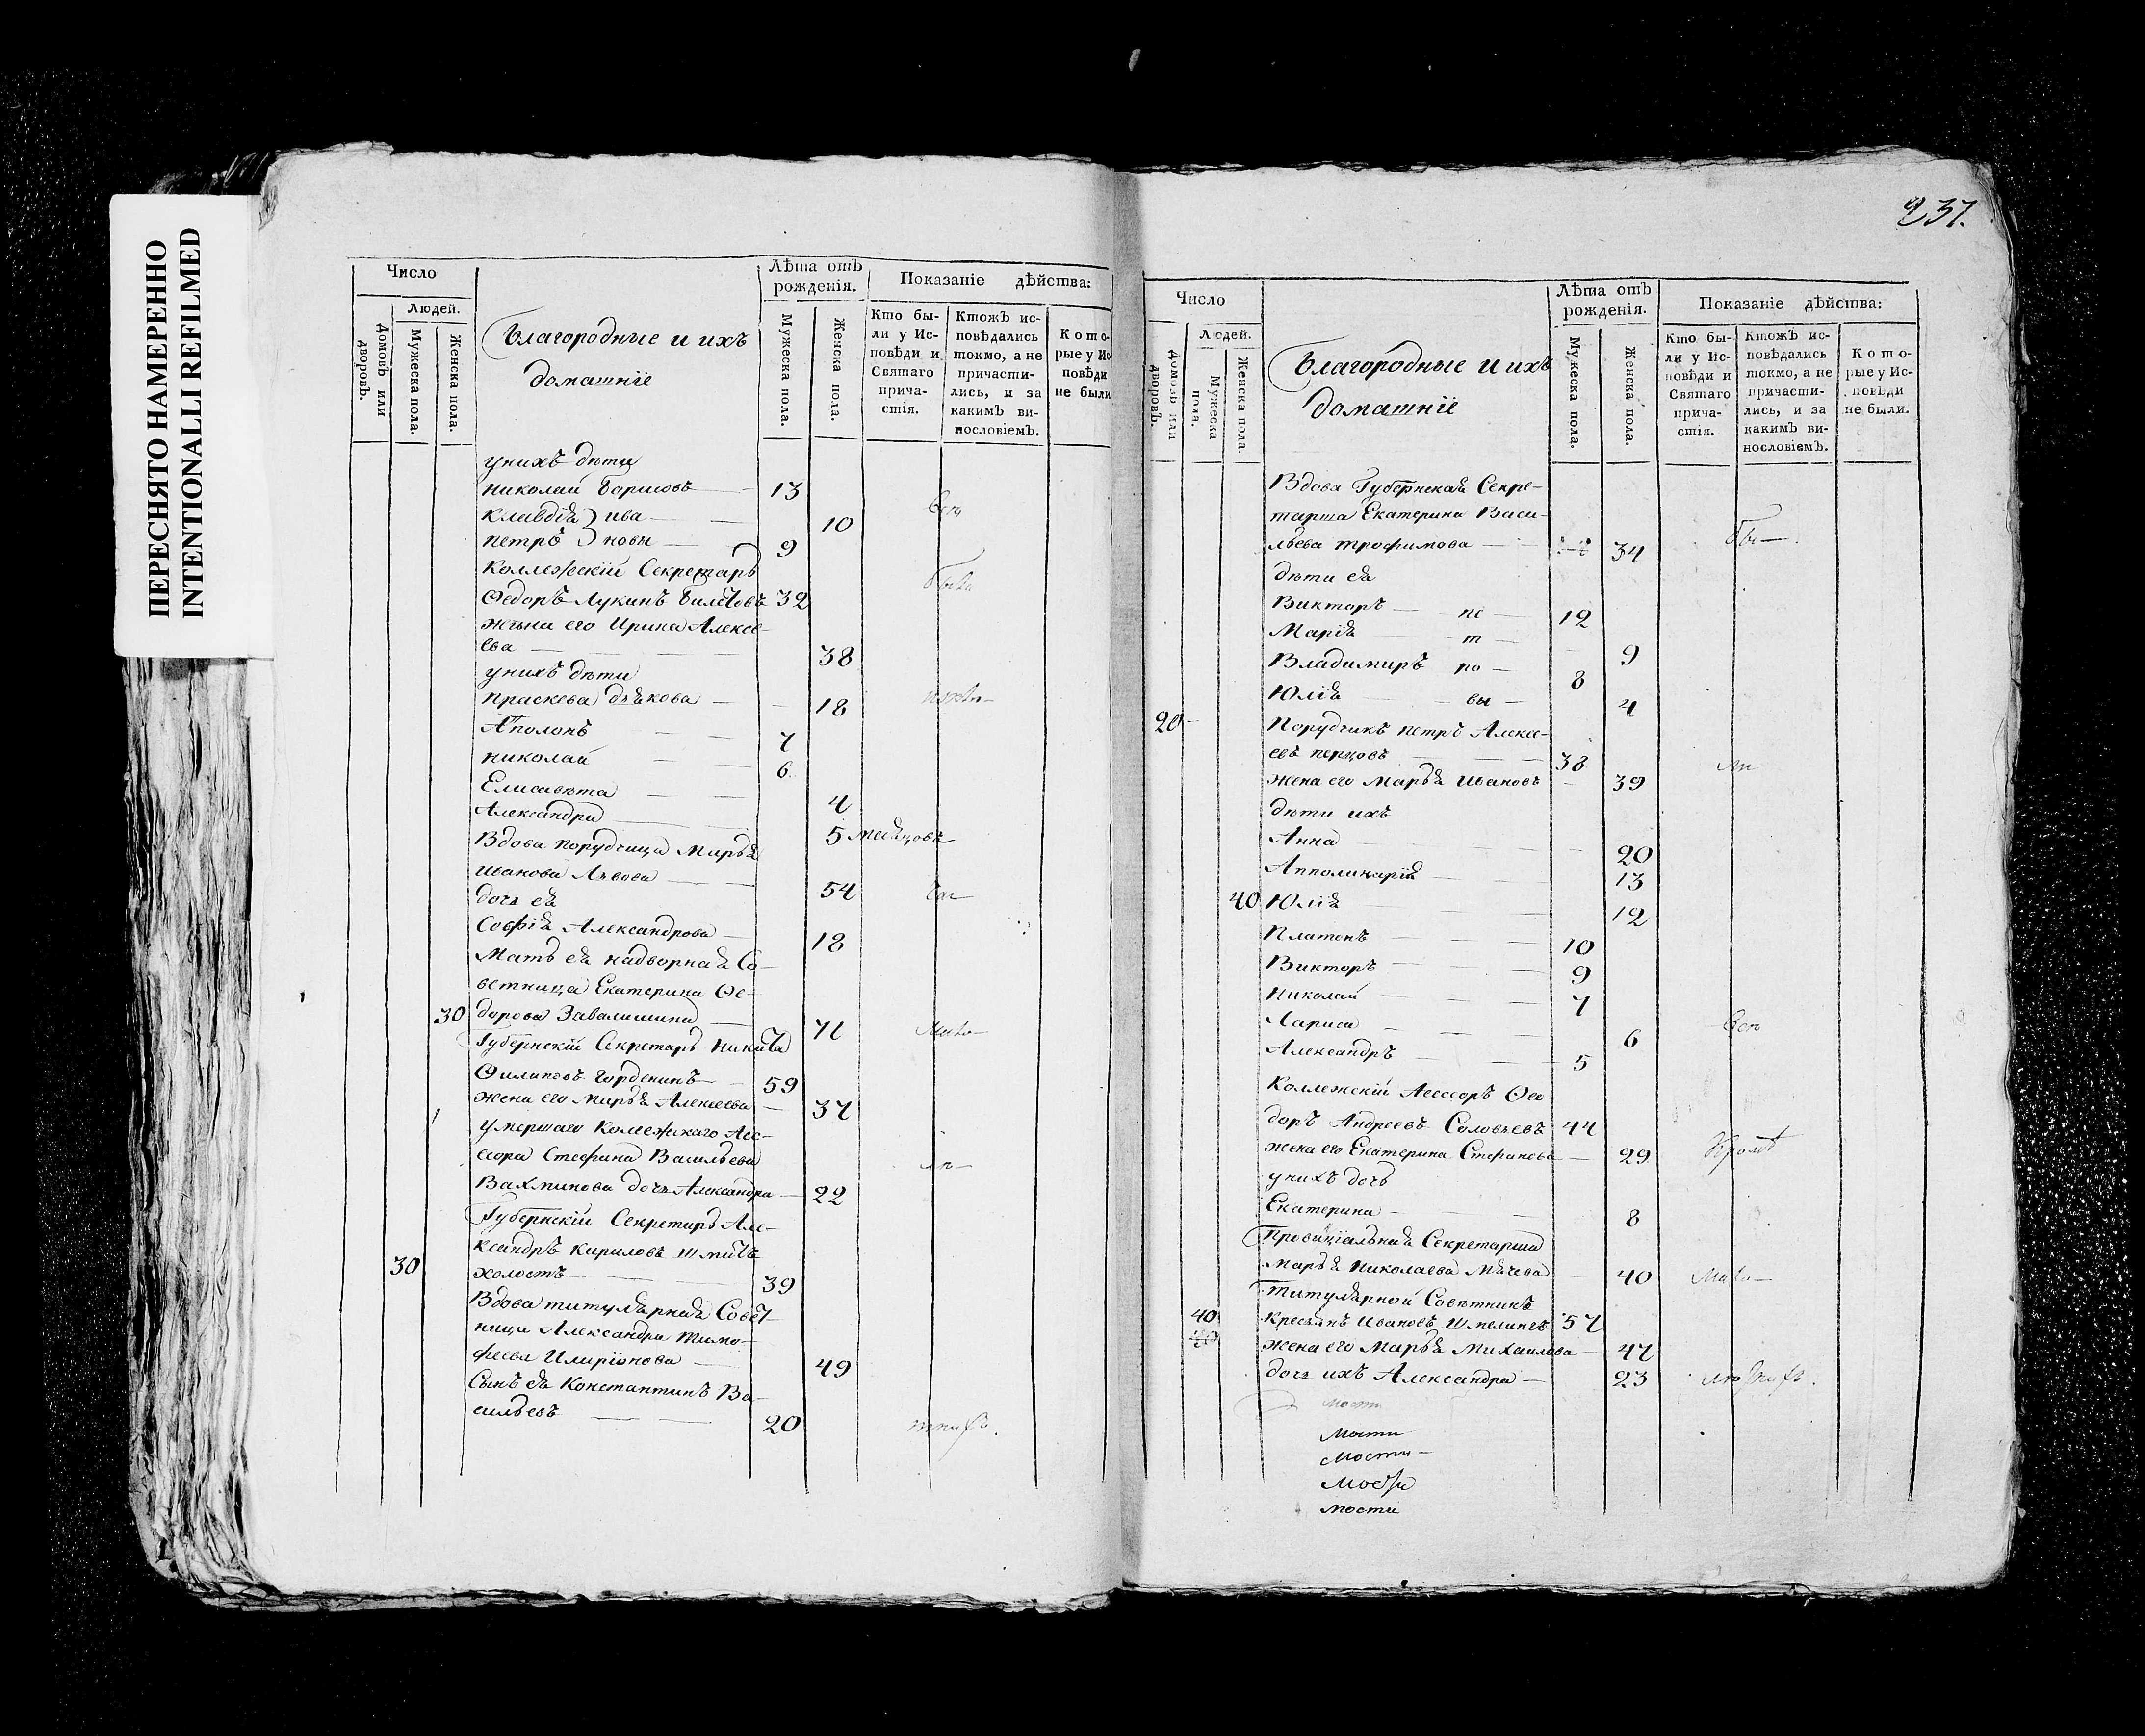 ПЕРЕСНЯТО НАМЕРЕННО
INTENTIONALLI REFILMED
237.
Число
Людей.
Домовъ или дворовъ.
Мужеска пола.
Женска пола.
Благородные и ихъ
домашніе
Лѣта отъ рожденія.
Мужеска пола.
Женска пола.
Показаніе дѣйства:
Кто были у Исповѣди и Святаго причастія.
Ктожъ исповѣдались токмо, а не причастились, и за какимъ винословіемъ.
Которые у Исповѣди не были
унихъ дѣти
Николай Борисовъ 13
Клавдія } ива 10
Петръ } новы 9
Коллежскій Секретарь
Ѳедоръ Лукинъ 32
жена его Ирина Алексе-
ева 38
унихъ дѣти
Праскева Дьякова 18
Аполонъ 7
Николай 6
Елисавѣта 4
Александра 5 месяцовъ
Вдова порудчица Марья
Иванова Львова 54
дочь ея
Софія Александрова 18
Мать ея надворная Со-
вѣтница Екатерина Ѳе-
30 дорова Завалишина 71
Губернскій Секретарь Никита
Филиповъ Горденинъ 59
жена его Марья Алексеева 37
умершаго Колежскаго Асе-
сора Стефана Васильева
дочь Александра 22
Губернскій Секретарь Але-
ксандръ Кириловъ Шмитъ
30 холостъ 39
Вдова титулярная Совет-
ница Александра Тимо-
феева Илиріонова 49
Сынъ ея Константинъ Ва-
сильевъ 20
Число
Людей.
Домовъ или дворовъ.
Мужеска пола.
Женска пола.
Благородные и ихъ
домашніе
Лѣта отъ рожденія.
Мужеска пола.
Женска пола.
Показаніе дѣйства:
Кто были у Исповѣди и Святаго причастія.
Ктожъ исповѣдались токмо, а не причастились, и за какимъ винословіемъ.
Которые у Исповѣди не были.
Вдова Губернская Секре-
тарша Екатерина Васи-
льева Трофимова 34
дѣти ея
Викторъ пе 12
Марія т 9
Владимиръ ро 8
Юлія вы 4
20 Порудчикъ Петръ Алексе-
евъ Перцовъ 38
жена его Марья Иванова 39
дѣти ихъ
Анна 20
Апполинарія 13
40 Юлія 12
Платонъ 10
Викторъ 9
Николай 7
Лариса 6
Александръ 5
Коллежскій Асессоръ Ѳео-
доръ Андреевъ Соловьевъ 44
жена его Екатерина Стефанова 29
унихъ дочь
Екатерина 8
Провинціальная Секретарша
Марья Николаева Мячева 40
Титулярной Совѣтникъ
40 Крестьянъ Ивановъ Шмелингъ 57
жена его Марья Михаилова 47
дочь ихъ Александра 23
мости
мости
мости
мости
мости